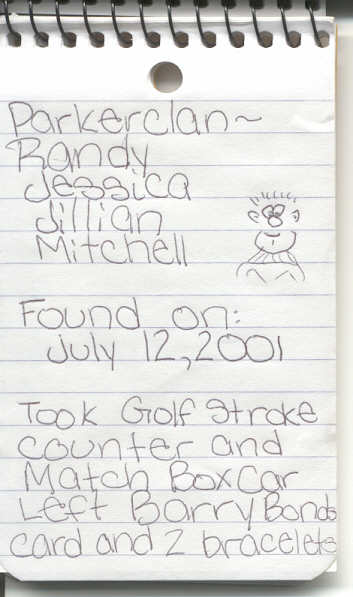 Parkerclan~
Randy
Jessica
Jillian
Mitchell
Found on:
July 12, 2001
Took Golf Stroke
counter and
Match Box Car
Left Barry Bonds
card and 2 bracelets